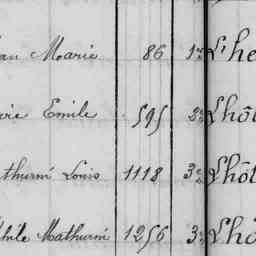 an Marie 86 1re L'he
rie Emile 595 2e Lhô
athurin Louis 1118 3e Lhôt
phile Mathurin 1256 3e Lhô